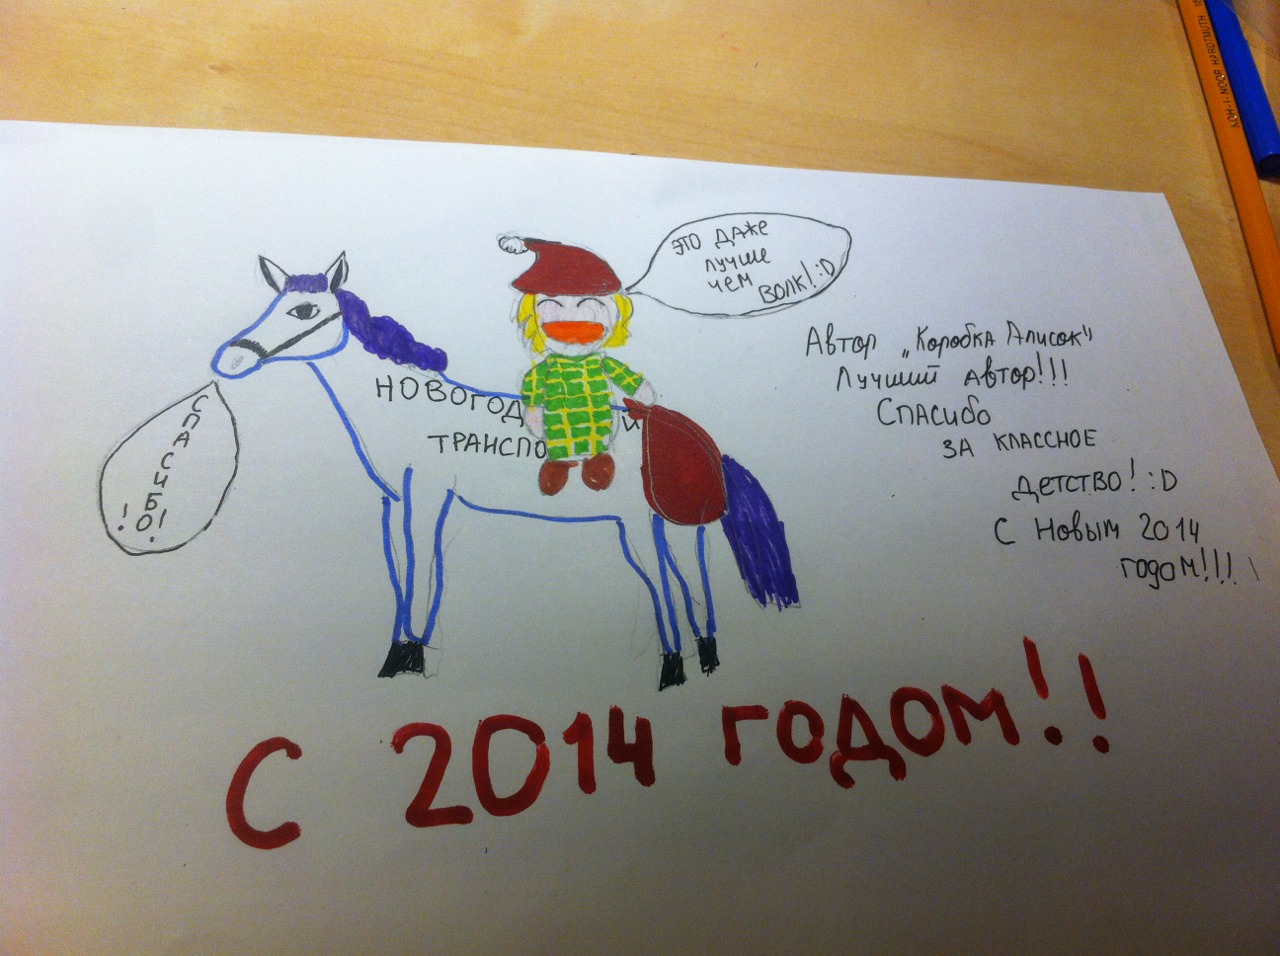 ЭТО ДАЖЕ
ЛУЧШЕ
ЧЕМ
ВОЛК! :D
НОВОГОД Й
ТРАНСПО
СПАСИБО!!
Автор „Коробка Алисок"
Лучший автор!!!
Спасибо
ЗА КЛАССНОЕ
ДЕТСТВО! :D
С Новым 2014
годом!!!
С 2014 ГОДОМ!!
KOH-I-NOOR HARDTMUTH